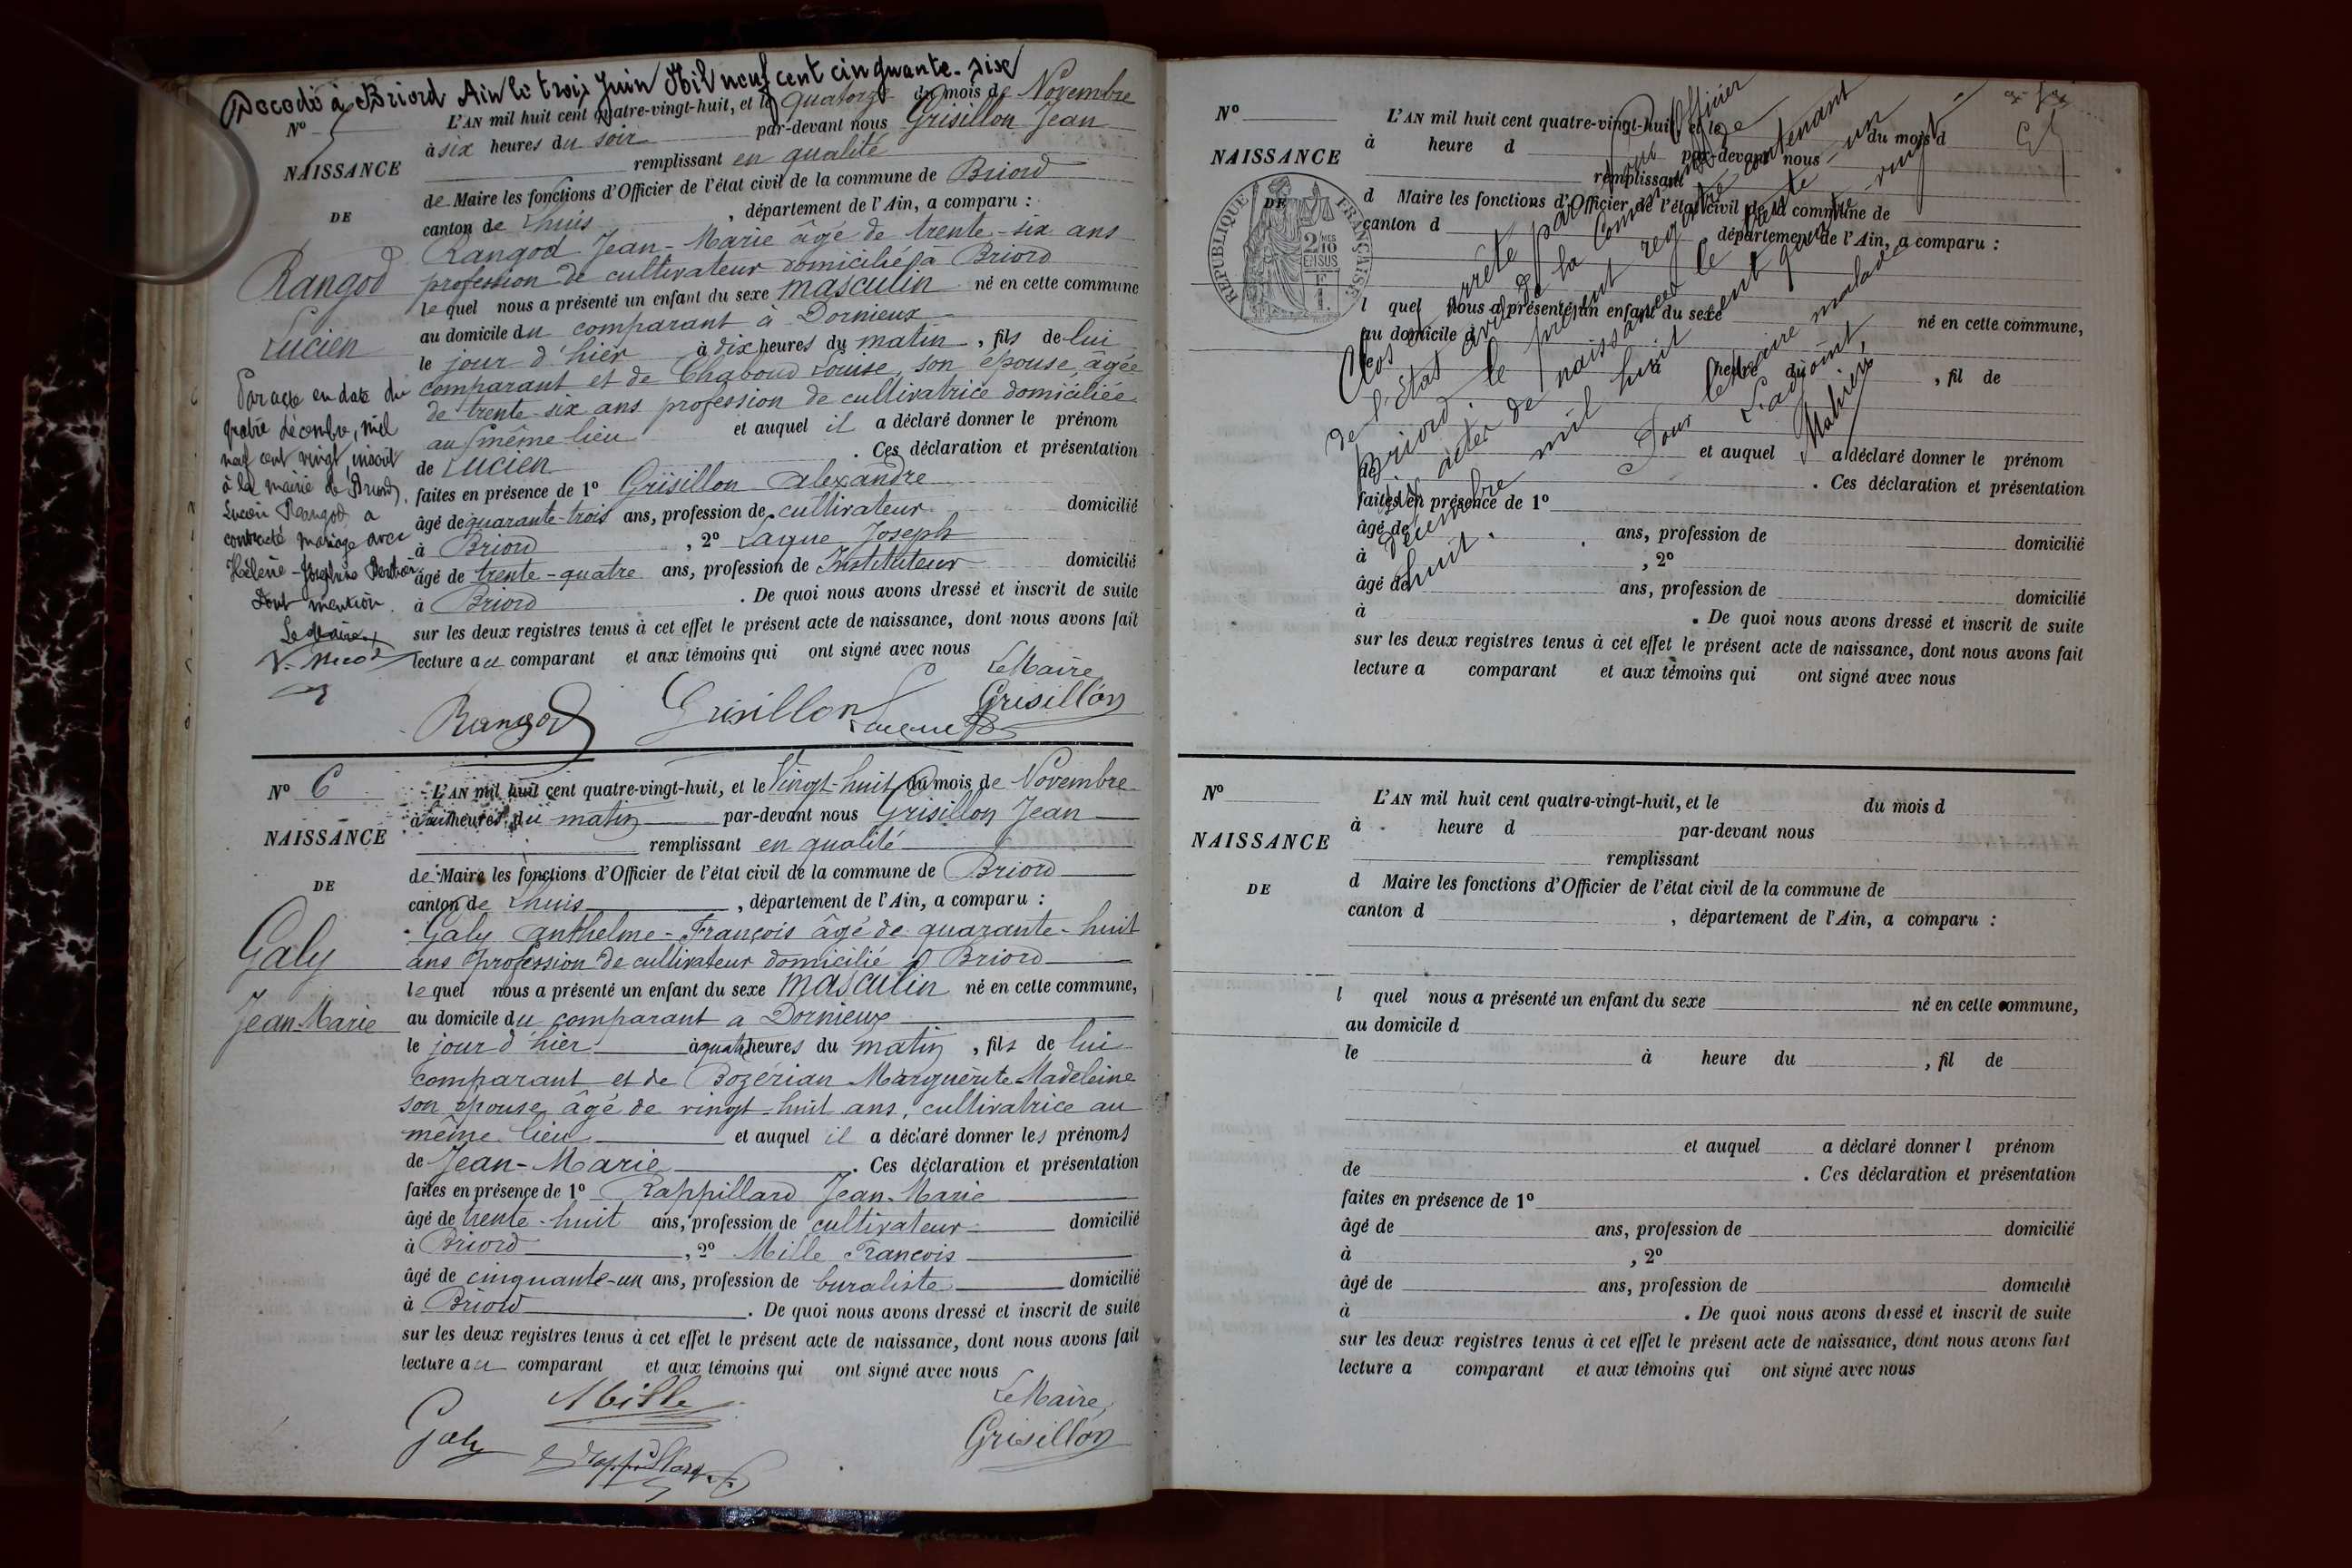 Décédé à Briord Ain le trois Juin Mil neuf cent cinquante-six
N° 5
NAISSANCE
DE
Rangod
Lucien
Par acte en date du
quatre décembre, mil
neuf cent vingt, inscrit
à la mairie de Briord,
Lucien Rangod a
contracté mariage avec
Hélène-Joséphine
Dont mention.
Le Maire,
L'AN mil huit cent quatre-vingt-huit, et le quatorze du mois de Novembre
à six heures du soir par-devant nous Grisillon Jean
remplissant en qualité
de Maire les fonctions d'Officier de l'état civil de la commune de Briord
canton de Lhuis, département de l'Ain, a comparu :
Rangod Jean-Marie âgé de trente-six ans
profession de cultivateur domicilié à Briord
le quel nous a présenté un enfant du sexe masculin né en cette commune
au domicile du comparant à Dornieux
le jour d'hier à dix heures du matin, fils de lui
comparant et de Chaboud Louise, son épouse, âgée
de trente-six ans profession de cultivatrice domiciliée
au même lieu et auquel il a déclaré donner le prénom
de Lucien. Ces déclaration et présentation
faites en présence de 1° Grisillon Alexandre
âgé de quarante-trois ans, profession de cultivateur domicilié
à Briord, 2° Laque Joseph
âgé de trente-quatre ans, profession de Instituteur domicilié
à Briord. De quoi nous avons dressé et inscrit de suite
sur les deux registres tenus à cet effet le présent acte de naissance, dont nous avons fait
lecture au comparant et aux témoins qui ont signé avec nous
Le Maire
Rangod Grisillon Grisillon
N° 6
NAISSANCE
DE
Galy
Jean-Marie
L'AN mil huit cent quatre-vingt-huit, et le Vingt-huit du mois de Novembre
à huit heures du matin par-devant nous Grisillon Jean
remplissant en qualité
de Maire les fonctions d'Officier de l'état civil de la commune de Briord
canton de Lhuis, département de l'Ain, a comparu :
Galy Anthelme-François âgé de quarante-huit
ans profession de cultivateur domicilié à Briord
le quel nous a présenté un enfant du sexe masculin né en cette commune,
au domicile du comparant à Dornieux
le jour d'hier à quatre heures du matin, fils de lui
comparant et de Bozérian Marguerite Madeleine
son épouse âgé de vingt-huit ans, cultivatrice au
même lieu et auquel il a déclaré donner les prénoms
de Jean-Marie. Ces déclaration et présentation
faites en présence de 1° Rappillard Jean-Marie
âgé de trente-huit ans, profession de cultivateur domicilié
à Briord, 2° Mille François
âgé de cinquante-un ans, profession de buraliste domicilié
à Briord. De quoi nous avons dressé et inscrit de suite
sur les deux registres tenus à cet effet le présent acte de naissance, dont nous avons fait
lecture au comparant et aux témoins qui ont signé avec nous
Mille Le Maire,
Galy Rappillard Grisillon
N°
NAISSANCE
DE
RÉPUBLIQUE FRANÇAISE
2/10 MES EN SUS
1 F
L'AN mil huit cent quatre-vingt-huit, et le du mois d
à heure d par-devant nous
remplissant
d Maire les fonctions d'Officier de l'état civil de la commune de
canton d, département de l'Ain, a comparu :
l quel nous a présenté un enfant du sexe né en cette commune,
au domicile d
le à heure du, fil de
et auquel a déclaré donner le prénom
de. Ces déclaration et présentation
faites en présence de 1°
âgé de ans, profession de domicilié
à, 2°
âgé de ans, profession de domicilié
à. De quoi nous avons dressé et inscrit de suite
sur les deux registres tenus à cet effet le présent acte de naissance, dont nous avons fait
lecture a comparant et aux témoins qui ont signé avec nous
Clos et arrêté par nous Officier
de l'état civil de la Commune de
Briord, le présent registre contenant
six actes de naissance, le trente-un
Décembre mil huit cent quatre-vingt-
huit.
Pour le Maire malade
L'adjoint,
N°
NAISSANCE
DE
L'AN mil huit cent quatre-vingt-huit, et le du mois d
à heure d par-devant nous
remplissant
d Maire les fonctions d'Officier de l'état civil de la commune de
canton d, département de l'Ain, a comparu :
l quel nous a présenté un enfant du sexe né en cette commune,
au domicile d
le à heure du, fil de
et auquel a déclaré donner l prénom
de. Ces déclaration et présentation
faites en présence de 1°
âgé de ans, profession de domicilié
à, 2°
âgé de ans, profession de domicilié
à. De quoi nous avons dressé et inscrit de suite
sur les deux registres tenus à cet effet le présent acte de naissance, dont nous avons fait
lecture a comparant et aux témoins qui ont signé avec nous